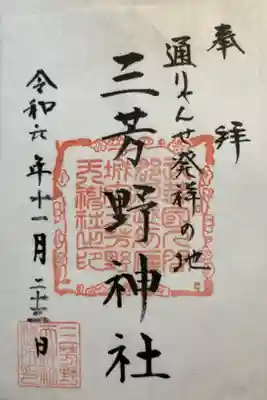 奉拝
通りゃんせ発祥の地
三芳野神社
令和六年十一月二十三日